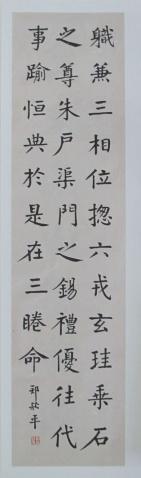 職兼三相位揔六戎玄珪乘石
之尊朱戶渠門之錫禮優往代
事踰恒典於是在三睠命
祁欣平